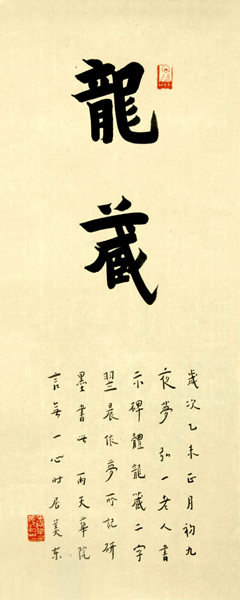 龍藏
歲次乙未正月初九
夜夢弘一老人書
示碑體龍藏二字
翌晨依夢所記研
墨書此雨天華院
言無一心时居美东